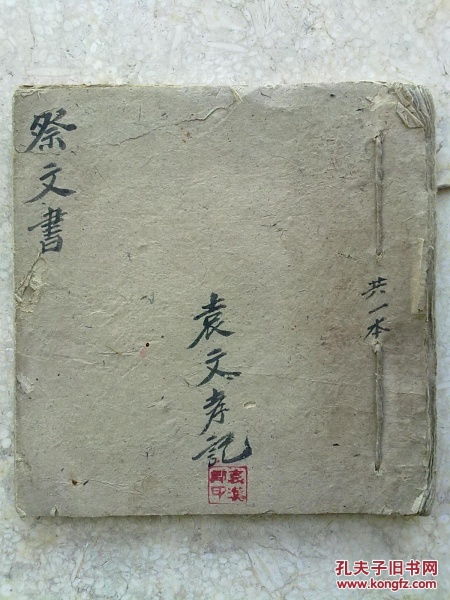 祭文書
共一本
袁文孝記
孔夫子旧书网
www.kongfz.com